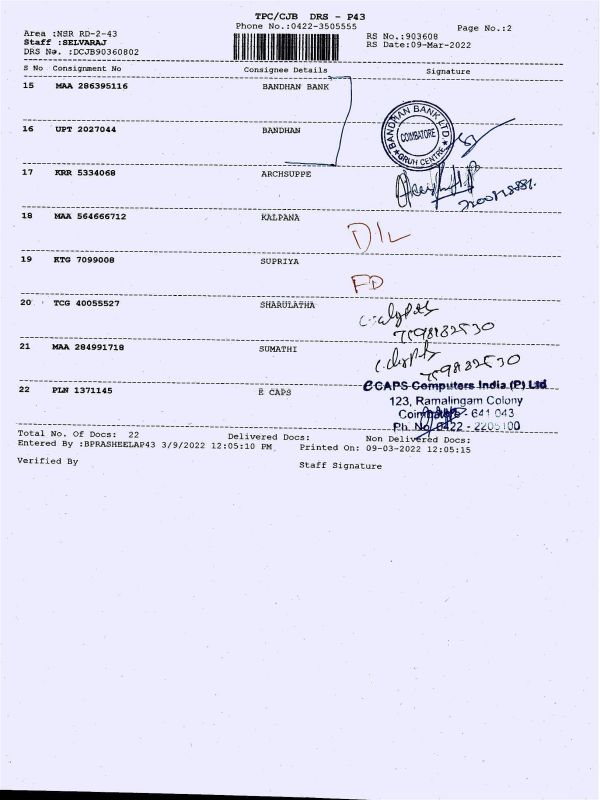 TPC/CJB DRS - P43
Area :NSR RD-2-43 Phone No.:0422-3505555 Page No.:2
Staff :SELVARAJ RS No.:903608
DRS No. :DCJB90360802 RS Date:09-Mar-2022
S No Consignment No Consignee Details Signature
15 MAA 286395116 BANDHAN BANK
BANDHAN BANK LTD.
COIMBATORE
GRUH CENTRE
16 UPT 2027044 BANDHAN
17 KRR 5334068 ARCHSUPPE
18 MAA 564666712 KALPANA
D/L
19 KTG 7099008 SUPRIYA
FD
20 TCG 40055527 SHARULATHA
21 MAA 284991718 SUMATHI
22 PLN 1371145 E CAPS
eCAPS Computers India (P) Ltd
123, Ramalingam Colony
Coimbatore - 641 043
Ph. No. 0422 - 2205100
Total No. Of Docs: 22 Delivered Docs: Non Delivered Docs:
Entered By :BPRASHEELAP43 3/9/2022 12:05:10 PM Printed On: 09-03-2022 12:05:15
Verified By Staff Signature